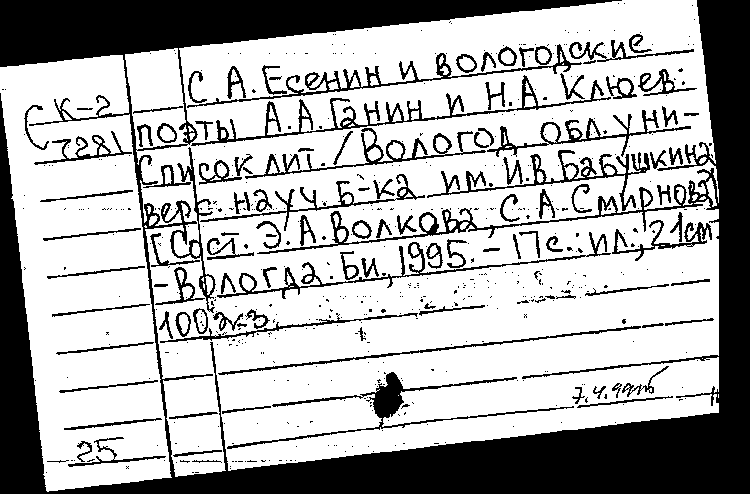 С.А. Есенин и вологодские
К-2
7281
поэты А.А. Ганин и Н.А. Клюев:
Список лит. / Вологод. обл. уни-
верс. науч. б-ка им. И.В. Бабушкина
[Сост. Э.А. Волкова, С.А. Смирнова]
- Вологда: Б.и., 1995. - 17с.: ил.; 21см.
100 экз.
7.4.99
25